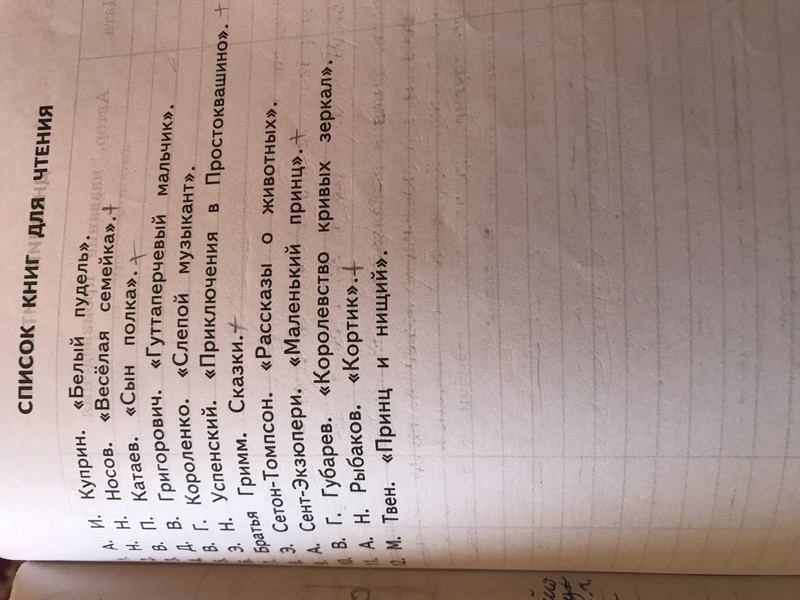 СПИСОК КНИГ ДЛЯ ЧТЕНИЯ
А. И. Куприн. «Белый пудель».
Н. Н. Носов. «Весёлая семейка».+
В. П. Катаев. «Сын полка».+
Д. В. Григорович. «Гуттаперчевый мальчик».
В. Г. Короленко. «Слепой музыкант».
Э. Н. Успенский. «Приключения в Простоквашино».+
Братья Гримм. Сказки.+
Э. Сетон-Томпсон. «Рассказы о животных».
А. Сент-Экзюпери. «Маленький принц».+
В. Г. Губарев. «Королевство кривых зеркал».
А. Н. Рыбаков. «Кортик».+
М. Твен. «Принц и нищий».